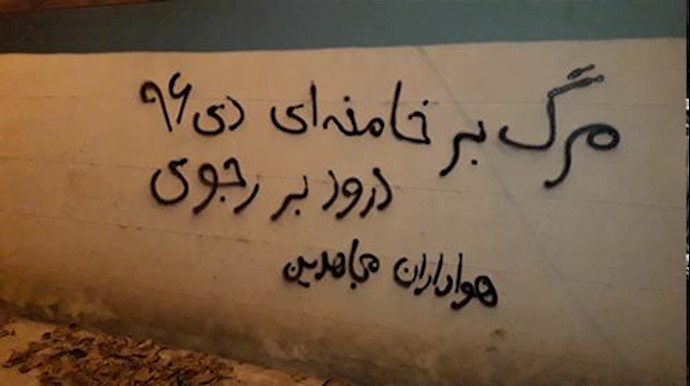 مرگ بر خامنه‌ای دی ۹۶
درود بر رجوی
هواداران مجاهدین